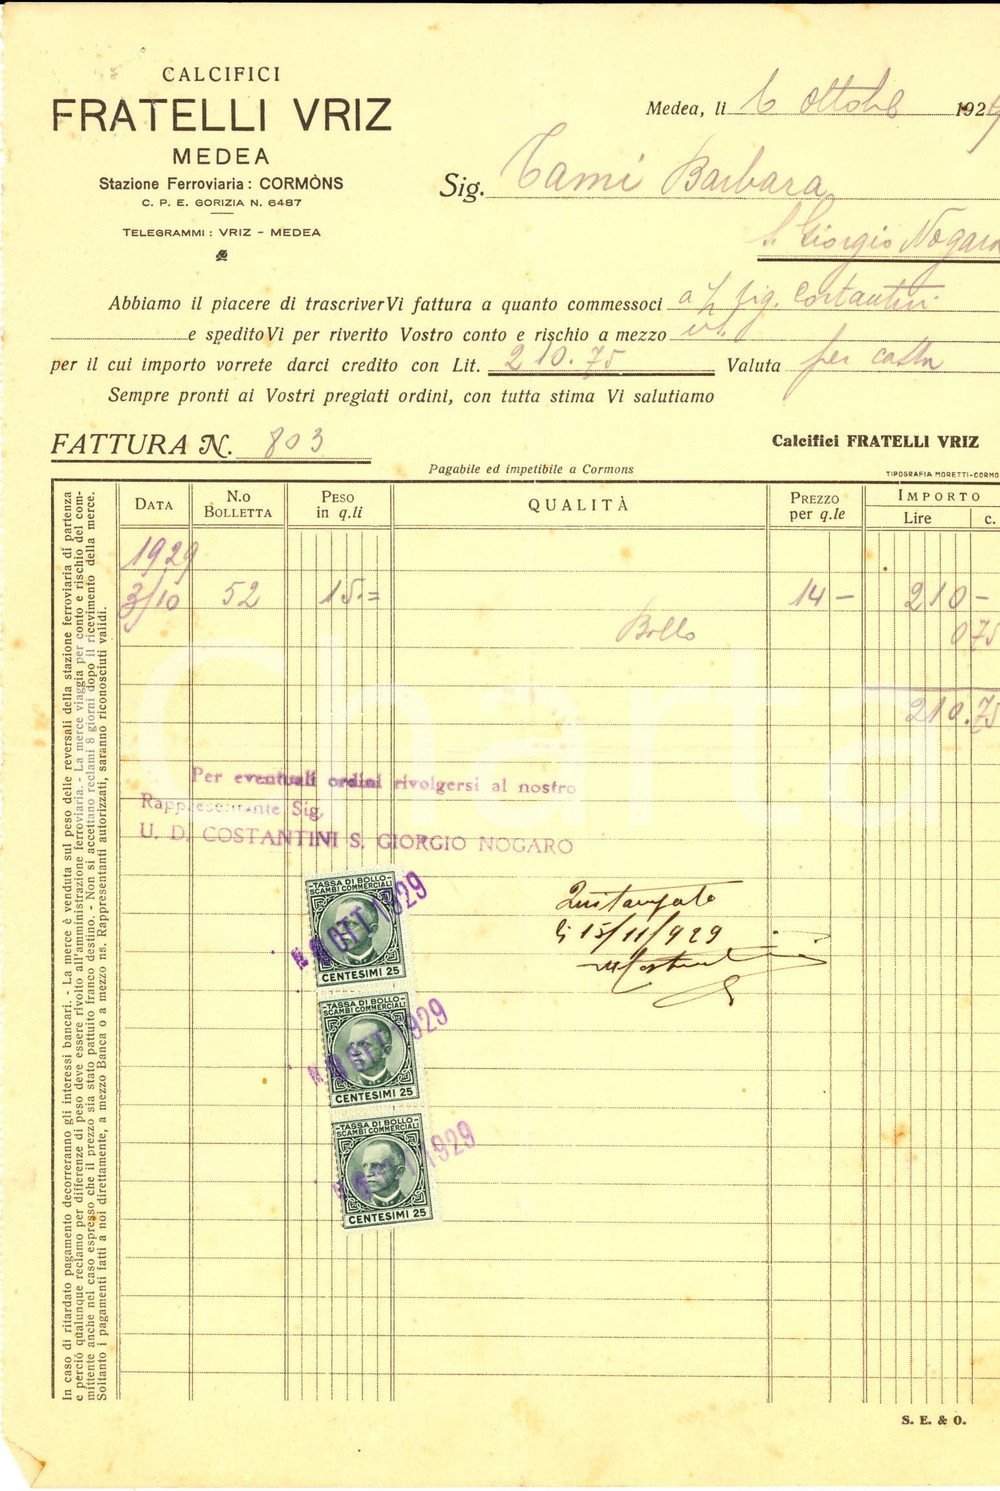 CALCIFICI
FRATELLI VRIZ
MEDEA
Stazione Ferroviaria: CORMÒNS
C. P. E. GORIZIA N. 6487
TELEGRAMMI: VRIZ - MEDEA
Medea, li 6 ottobre 1929
Sig. Tami Barbara
S. Giorgio Nogaro
Abbiamo il piacere di trascriverVi fattura a quanto commessoci a/ sig. Costantini
e speditoVi per riverito Vostro conto e rischio a mezzo
per il cui importo vorrete darci credito con Lit. 210.75 Valuta per cassa
Sempre pronti ai Vostri pregiati ordini, con tutta stima Vi salutiamo
FATTURA N. 803
Calcifici FRATELLI VRIZ
Pagabile ed impetibile a Cormons
TIPOGRAFIA MORETTI-CORMO
DATA N.o BOLLETTA PESO in q.li QUALITÀ PREZZO per q.le IMPORTO Lire c.
1929
3/10 52 15.= 14 — 210 —
Bollo 0 75
210.75
Per eventuali ordini rivolgersi al nostro
Rappresentante Sig.
U. D. COSTANTINI S. GIORGIO NOGARO
TASSA DI BOLLO
SCAMBI COMMERCIALI
CENTESIMI 25
OTT 1929
TASSA DI BOLLO
SCAMBI COMMERCIALI
CENTESIMI 25
OTT 1929
TASSA DI BOLLO
SCAMBI COMMERCIALI
CENTESIMI 25
1929
Quitanzato
li 15/11/929
In caso di ritardato pagamento decorreranno gli interessi bancari. - La merce è venduta sul peso delle reversali della stazione ferroviaria di partenza
e perciò qualunque reclamo per differenze di peso deve essere rivolto all'amministrazione ferroviaria. - La merce viaggia per conto e rischio del com-
mittente anche nel caso espresso che il prezzo sia stato pattuito franco destino. - Non si accettano reclami 8 giorni dopo il ricevimento della merce.
Soltanto i pagamenti fatti a noi direttamente, a mezzo Banca o a mezzo ns. Rappresentanti autorizzati, saranno riconosciuti validi.
S. E. & O.
Charta